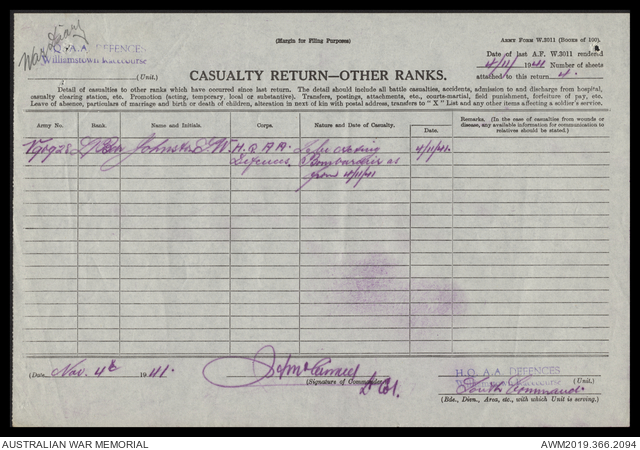 War Diary
H.Q. A.A. DEFENCES
Williamstown Racecourse
(Unit.)
(Margin for Filing Purposes)
ARMY FORM W.3011 (BOOKS OF 100).
Date of last A.F. W.3011 rendered
4/11/ 1941 Number of sheets
attached to this return 4.
CASUALTY RETURN—OTHER RANKS.
Detail of casualties to other ranks which have occurred since last return. The detail should include all battle casualties, accidents, admission to and discharge from hospital,
casualty clearing station, etc. Promotion (acting, temporary, local or substantive). Transfers, postings, attachments, etc., courts-martial, field punishment, forfeiture of pay, etc.
Leave of absence, particulars of marriage and birth or death of children, alteration in next of kin with postal address, transfers to "X" List and any other items affecting a soldier's service.
Army No. Rank. Name and Initials. Corps. Nature and Date of Casualty. Date. Remarks. (In the case of casualties from wounds or
disease, any available information for communication to
relatives should be stated.)
Johnston H.Q. A.A. To be acting 4/11/41.
Defences Bombardier as
from 4/11/41
(Date Nov. 4th 1941.
(Signature of Commander)
Lt Col.
H.Q. A.A. DEFENCES
Williamstown Racecourse (Unit.)
South Command.
(Bde., Divn., Area, etc., with which Unit is serving.)
AUSTRALIAN WAR MEMORIAL AWM2019.366.2094